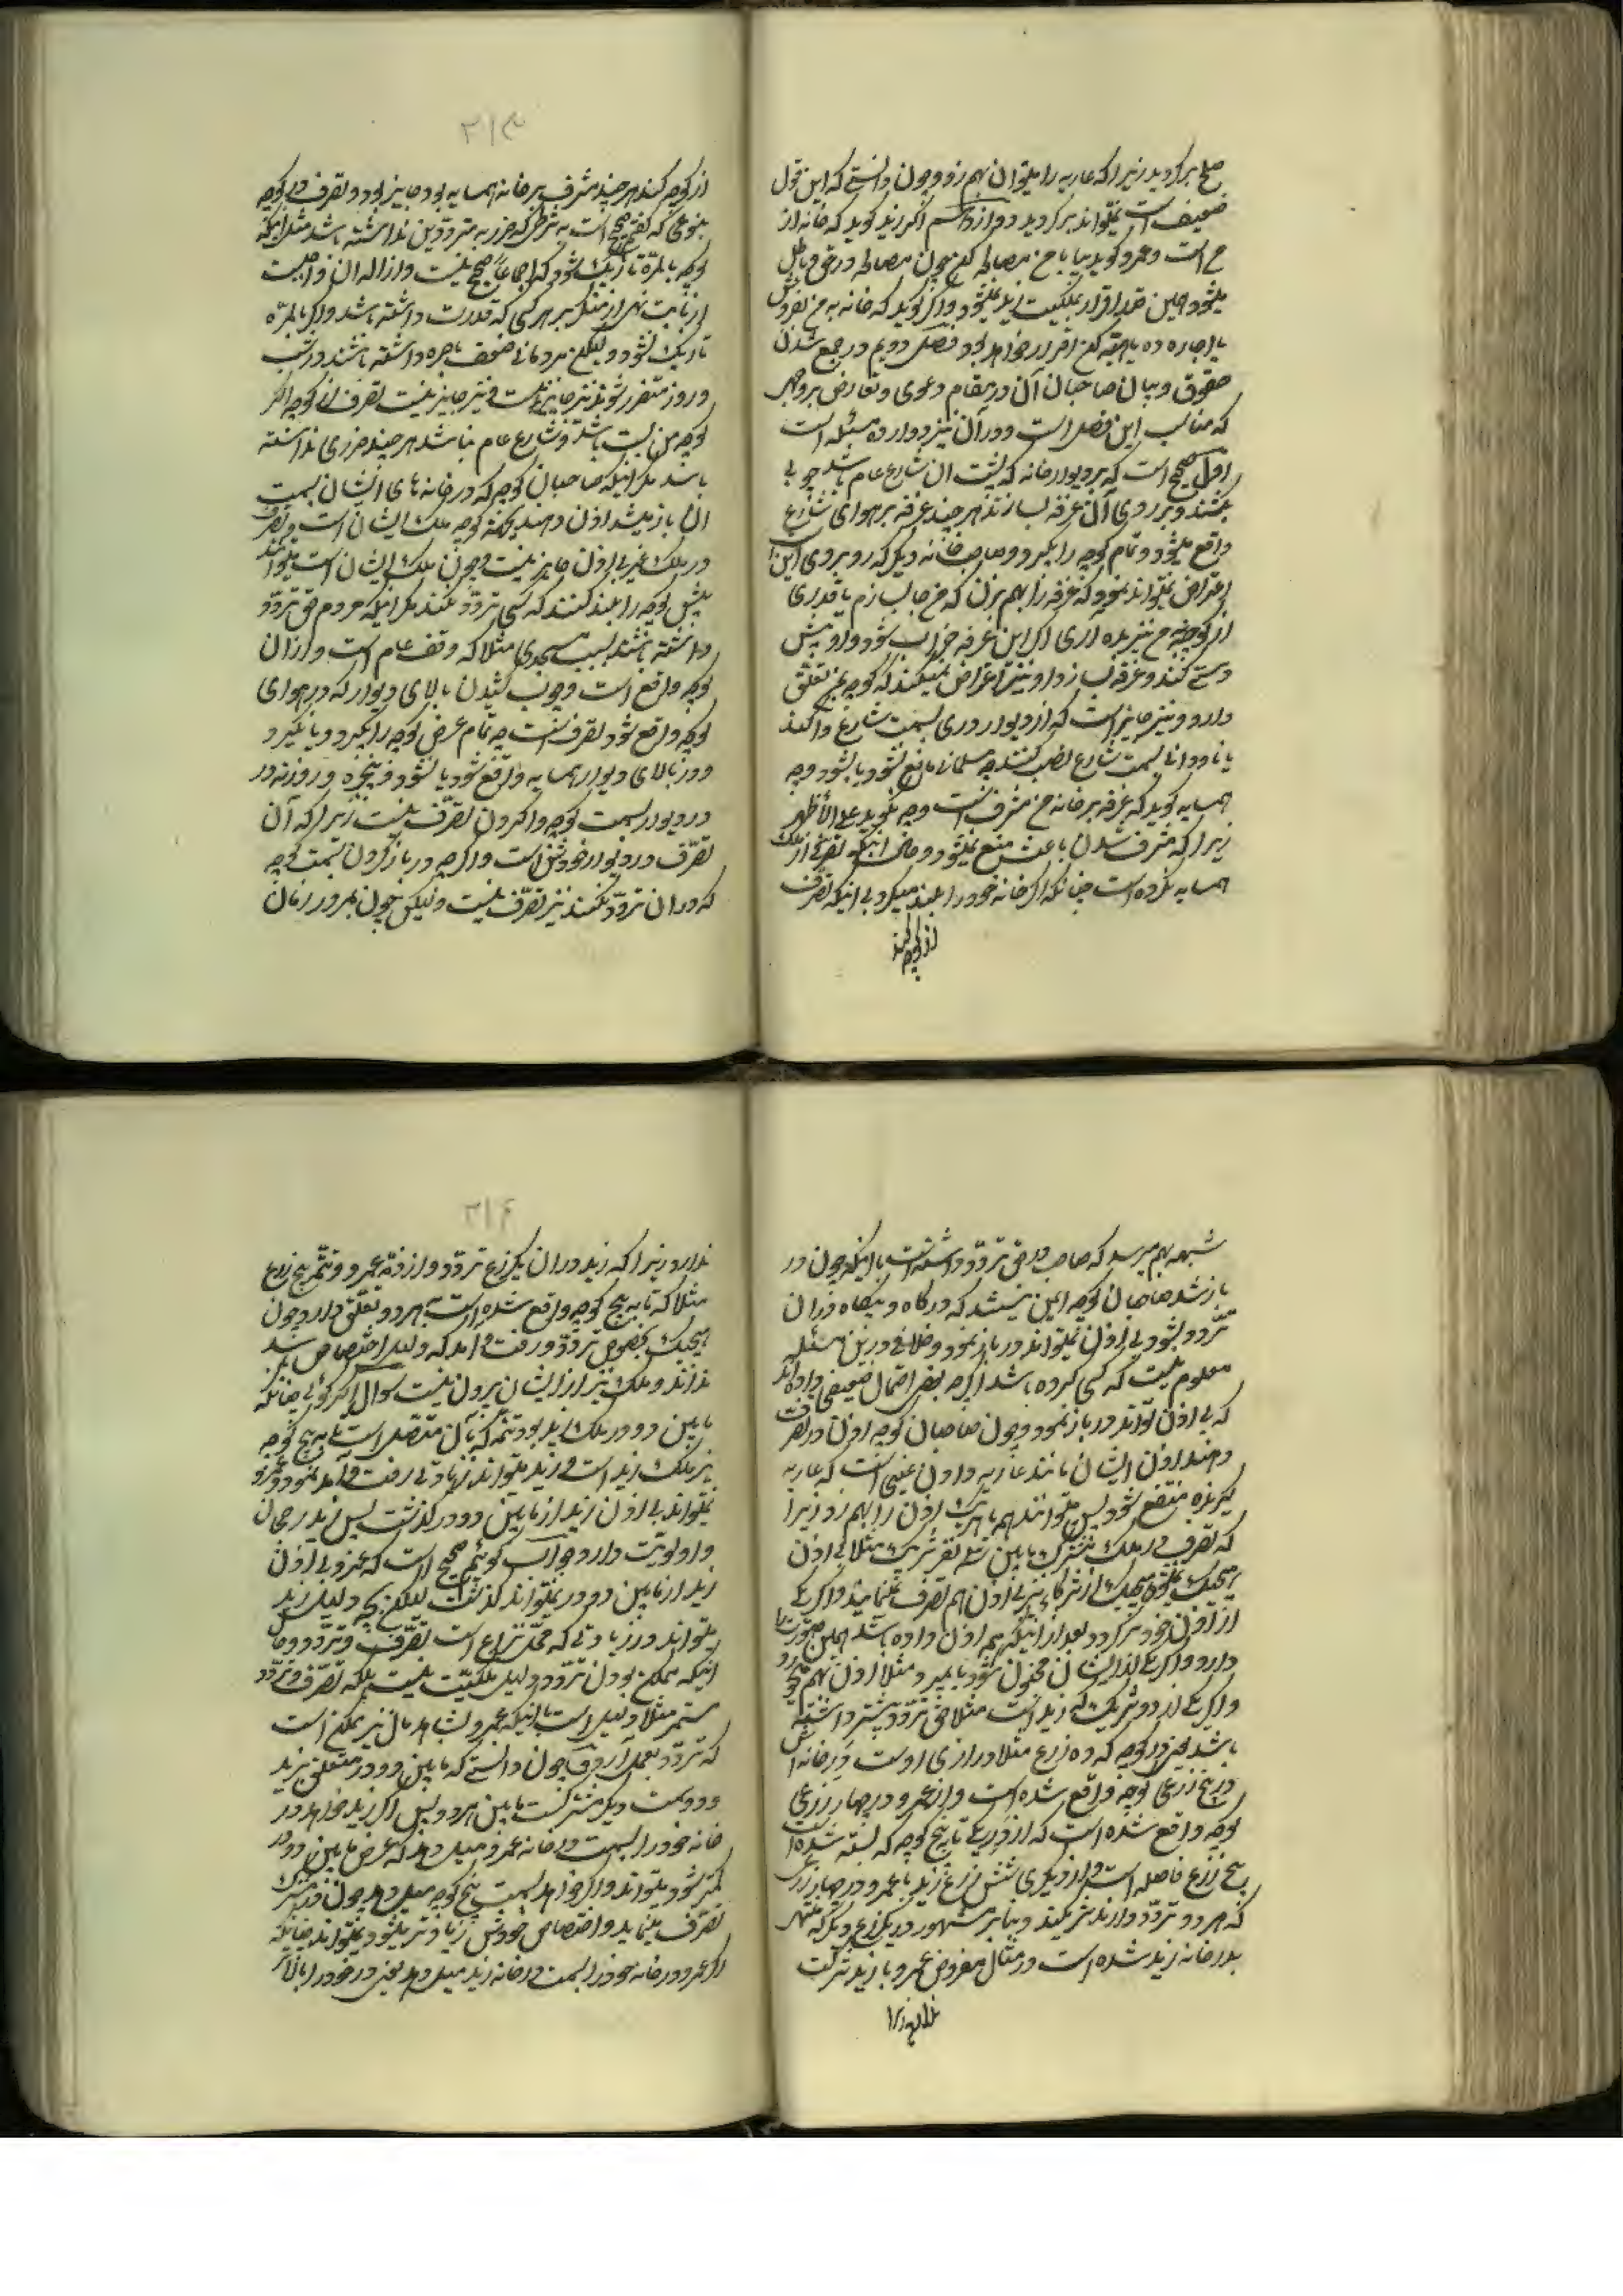 صلح برکردید زیرا که عاریه را میتوان بهم زد و چون دانستی که این قول
ضعیف است نمیتواند برکردید دوازدهم اکر زید کوید که خانه از
من است و عمرو کوید بیا با من مصالحه کن چون مصالحه در حق و باطل
میشود همین قدر اقرار بملکیت زید نمیشود و اکر کوید که خانه به من بفروش
یا اجاره ده یا هبه کن اقرار خواهد بود فصل دویم در جمع شدن
حقوق و بیان صاحبان آن در مقام دعوی و تعارض بر وجهی
که مناسب این فصل است و در آن نیز دوازده مسئله است
اول صحیح است که بر دیوار خانه که پشت آن شارع عام باشد چوبی
بکشند و بر روی آن غرفه بسازند هر چند غرفه بر هوای شارع
واقع میشود و تمام کوچه را بکیرد و صاحب خانه دیکر که روبروی این
اعتراض نمیتواند نمود که غرفه را بهم بزن که من جالب زم یا قدری
از کوچه به من نیز بده آری اکر این غرفه خراب شود و او پیش
دستی کند و غرفه بسازد او نیز اعتراض نمیکند که کوچه بمن تعلق
دارد و نیز جایز است که از دیوار دری بسمت شارع وا کند
یا ناودانی بسمت شارع نصب کنند چه مسلمانی مانع نشود یا بشود و چه
همسایه کوید که غرفه بر خانه من مشرفست و چه نکوید علی الأظهر
زیرا که مشرف شدن باعث منع نمیشود و حال اینکه تصرفی در ملک
همسایه نکرده است چنانکه اکر خانه خود را بلند میکرد بی اینکه تصرف
از کوچه کند
۲۱۳
از کوچه کند هر چند مشرف بر خانه همسایه بود جایز بود و تصرف در کوچه
بنوعی که کفتیم صحیح است به شرطی که ضرر به مترددین نداشته باشد مثل اینکه
کوچه بالمره تاریک شود که اجماعاً صحیح نیست و ازاله آن واجبست
از بابت نهی از منکر بر هر کس که قدرت داشته باشد و اکر بالمره
تاریک نشود و لیکن مردمانی ضعف باصره داشته باشند و در شب
و روز متضرر شوند نیز جایز نیست و نیز جایز نیست تصرف از کوچه اکر
کوچه بن بست باشد و شارع عام نباشد هر چند ضرری نداشته
باشد مکر اینکه صاحبان کوچه که در خانه های ایشان بسمت
آن باز میشد اذن دهند چونکه کوچه ملک ایشان است و تصرف
در ملک غیر بی اذن جایز نیست و چون ملک ایشان است میتوانند
پیش کوچه را بلند کنند که کسی تردد نکند مکر اینکه مردم حق تردد
داشته باشند بسبب مسجدی مثلا که وقف عام است و از آن
کوچه واقع است و چوب کشیدن بالای دیوار که در هوای
کوچه واقع شود تصرفست چه تمام عرض کوچه را بکیرد و یا نکیرد
و در بالای دیوار همسایه واقع شود یا نشود و پنجره و روزنه در
در دیوار بسمت کوچه وا کردن تصرف نیست زیرا که آن
تصرف در دیوار خودش است و اکر چه در باز کردن بسمت کوچه
که در آن تردد نکنند نیز تصرف نیست و لیکن چون بمرور زمان
شبهه بهم میرسد که صاحب در حق تردد داشته است یا اینکه چون در
باز شد صاحبان کوچه ایمن نیستند که در کاه و بیکاه در آن
تردد بشود بی اذن نمیتواند در باز نمود و خلافی در این مسئله
معلوم نیست که کسی کرده باشد اکر چه بعض احتمال ضعیفی داده‌اند
که بی اذن تواند در باز نمود و چون صاحبان کوچه اذن در تصرف
دهند اذن ایشان مانند عاریه دادن عینی است که عاریه
کیرنده منتفع شود پس میتوانند هم یا هر یک اذن را بهم زد زیرا
که تصرف در ملک مشترک مابین سه نفر شریک مثلا بی اذن
هر یک نمیشود هیچیک از شرکاء نیز بی اذن هم تصرف نمینمایند و اکر یکی
از اذن خود برکردد بعد از اینکه هم اذن داده باشد همین صورت را
دارد و اکر یکی از ایشان مجنون شود یا بمیرد مثلا اذن بهم میخورد
و اکر یکی از دو شریک که زید است مثلا حق تردد بیشتر داشته
باشد یعنی در کوچه که ده زرع مثلا درازی اوست در خانه اش
در پنج زرعی کوچه واقع شده است و از عمرو در چهار زرعی
کوچه واقع شده است که از در یکی تا پنج کوچه که بسته شده است
پنج زرع فاصله است و از دیکری شش زرع زید با عمرو در چهار زرعی
که هر دو تردد دارند شریکند و بنابر مشهور در یک زرع دیکر که منتهی
بدر خانه زید شده است در مثال مفروض عمرو با زید شرکت
ندارد زیرا
۲۱۴
ندارد زیرا که زید در آن یک زرع تردد دارد نه عمرو و تتمه پنج زرع
مثلا که تا به پنج کوچه واقع شده است بهر دو تعلق دارد چون
هیچیک بخصوص تردد و رفت و آمد که دلیل اختصاص باشد
ندارند و ملک نیز از ایشان بیرون نیست سوال اکر کوئی چنانکه
مابین دو در ملک زید بود تتمه که بآن متصل است تا به پنج کوچه
نیز ملک زید است و زید میتواند زیادتی رفت و آمد نمود و عمرو
نمیتواند بی اذن زید از مابین دو در کذشت پس زید رجحان
و اولویت دارد جواب کوئیم صحیح است که عمرو بی اذن
زید از مابین دو در نمیتواند کذشت لیکن بچه دلیل زید
میتواند در زیادتی که محل نزاع است تصرف و تردد و حال
اینکه ممکن بودن تردد دلیل ملکیت نیست بلکه تصرف و تردد
مستمر مثلا دلیل است با اینکه عمرو بشاهد حال نیز ممکن است
که تردد بعمل آرد و چون دانستی که مابین دو در متعلق بزید
و دو سمت دیکر مشترکست مابین هر دو پس اکر زید خواهد در
خانه خود را بسمت در خانه عمرو میل دهد که عرض مابین دو در
کمتر شود میتواند و اکر خواهد بسمت پنج کوچه میل دهد چون در مشترک
تصرف مینماید و اختصاص خودش زیادتر میشود نمیتواند چنانکه
اکر عمرو در خانه خود را بسمت در خانه زید میل دهد یعنی در خود را بالاتر